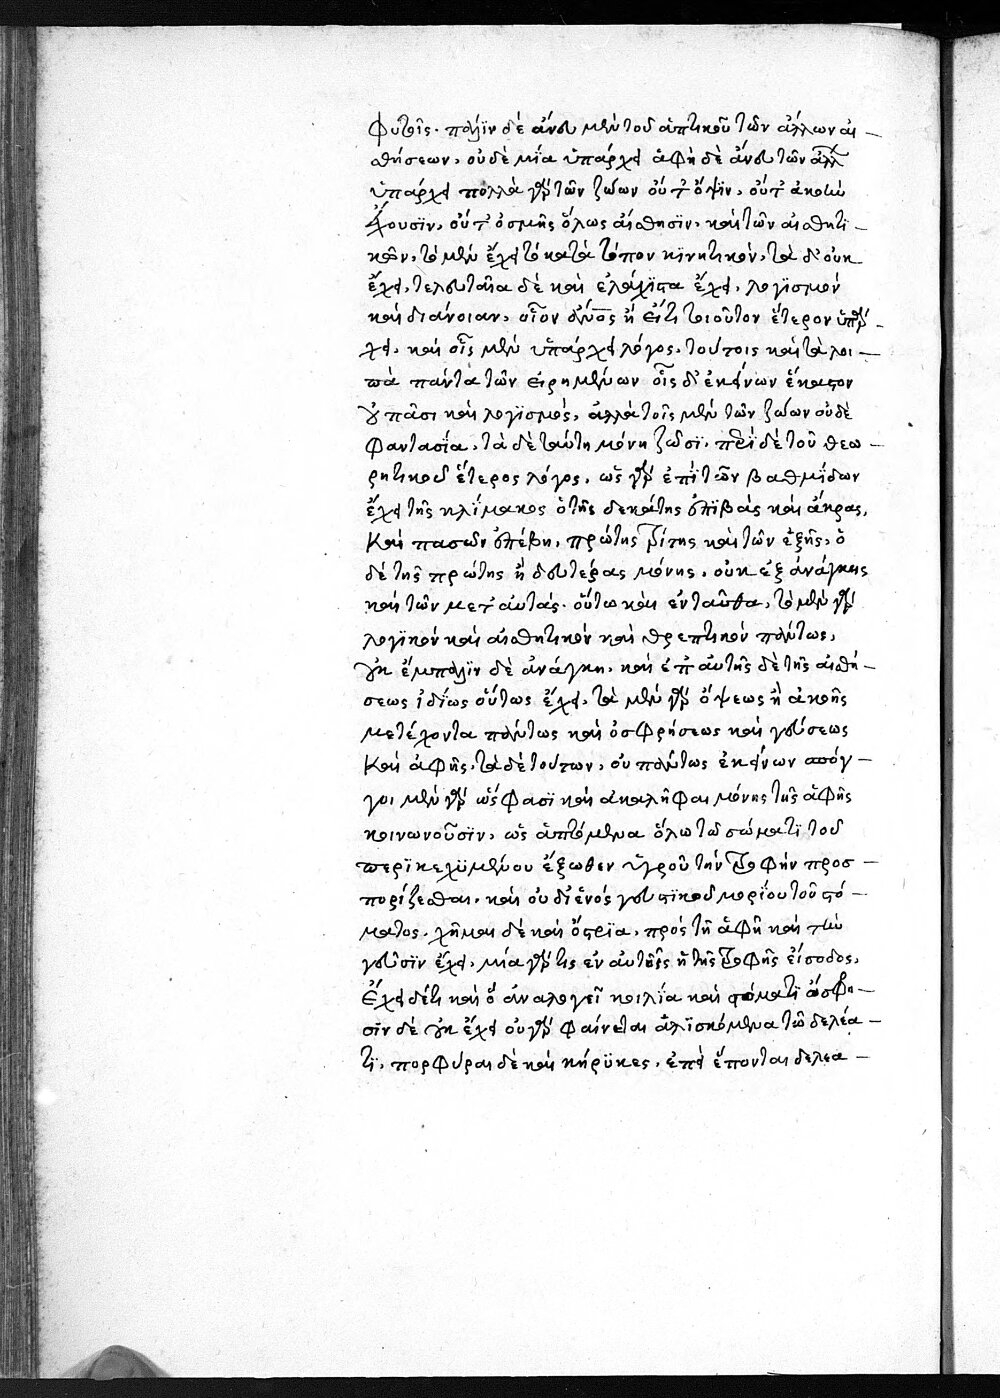 φυτοῖς. πάλιν δὲ ἄνευ μὲν τοῦ ἁπτικοῦ τῶν ἄλλων αἰ-
σθήσεων, οὐδὲ μία ὑπάρχει ἁφὴ δὲ ἄνευ τῶν ἄλλων
ὑπάρχει πολλὰ γὰρ τῶν ζώων οὔτ' ὄψϊν, οὔτ' ἀκοὴν
ἔχουσϊν, οὔτ' ὀσμῆς ὅλως αἴσθησϊν, καὶ τῶν αἰσθητι-
κῶν, τὸ μὲν ἔχει τὸ κατὰ τόπον κϊνητικὸν, τὰ δ' οὐκ
ἔχει, τελευταῖα δὲ καὶ ἐλάχϊστα ἔχει, λογϊσμὸν
καὶ διάνοιαν, οἷον ἄνθρωπος ἢ εἴ τι τοιοῦτον ἕτερον ὑπάρ-
χει. καὶ οἷς μὲν ὑπάρχει λόγος, τούτοις καὶ τὰ λοι-
πὰ πάντα τῶν εἰρημένων οἷς δ' ἐκείνων ἕκαστον
οὐ πᾶσι καὶ λογϊσμὸς, ἀλλὰ τοῖς μὲν τῶν ζώων οὐδὲ
φαντασΐα, τὰ δὲ ταύτῃ μόνῃ ζῶσϊ. περὶ δὲ τοῦ θεω-
ρητικοῦ ἕτερος λόγος, ὡς γὰρ ἐπὶ τῶν βαθμΐδων
ἔχει τῆς κλΐμακος ὁ τῆς δεκάτης ἐπϊβὰς καὶ ἄκρας,
καὶ πασῶν ἐπέβη, πρώτης τρίτης καὶ τῶν ἑξῆς, ὁ
δὲ τῆς πρώτης ἢ δευτέρας μόνης, οὐκ ἐξ ἀνάγκης
καὶ τῶν μετ' αὐτάς. οὕτω καὶ ἐνταῦθα, τὸ μὲν γὰρ
λογϊκὸν καὶ αἰσθητικὸν καὶ θρεπτικὸν πάντως,
οὐκ ἔμπαλϊν δὲ ἀνάγκη, καὶ ἐπ' αὐτῆς δὲ τῆς αἰσθή-
σεως ἰδΐως οὕτως ἔχει, τὰ μὲν γὰρ ὄψεως ἢ ἀκοῆς
μετέχοντα πάντως καὶ ὀσφρήσεως καὶ γεύσεως
καὶ ἁφῆς, τὰ δὲ τούτων, οὐ πάντως ἐκείνων σπόγ-
γοι μὲν γὰρ ὥς φασϊ καὶ ἀκαλῆφαι μόνης τῆς ἁφῆς
κοινωνοῦσϊν, ὡς ἁπτόμενα ὅλω τῶ σώματϊ τοῦ
περϊκεχϋμένου ἔξωθεν ὑγροῦ τὴν τροφὴν προσ-
πορίζεσθαι, καὶ οὐ δι' ἑνὸς γευστϊκοῦ μορΐου τοῦ στό-
ματος. χῆμαι δὲ καὶ ὄστρϊα, πρὸς τῆ ἁφῆ καὶ τὴν
γεῦσϊν ἔχει, μία γάρ τις ἐν αὐτοῖς ἡ τῆς τροφῆς εἴσοδος,
ἔχει δέ τι καὶ ὃ ἀναλογεῖ κοιλΐα καὶ στόματϊ ὄσφρη-
σϊν δὲ οὐκ ἔχει οὐ γὰρ φαίνεται ἁλϊσκόμενα τῶ δελέα-
τϊ, πορφύραι δὲ καὶ κήρϋκες, ἐπεὶ ἕπονται δελεα-